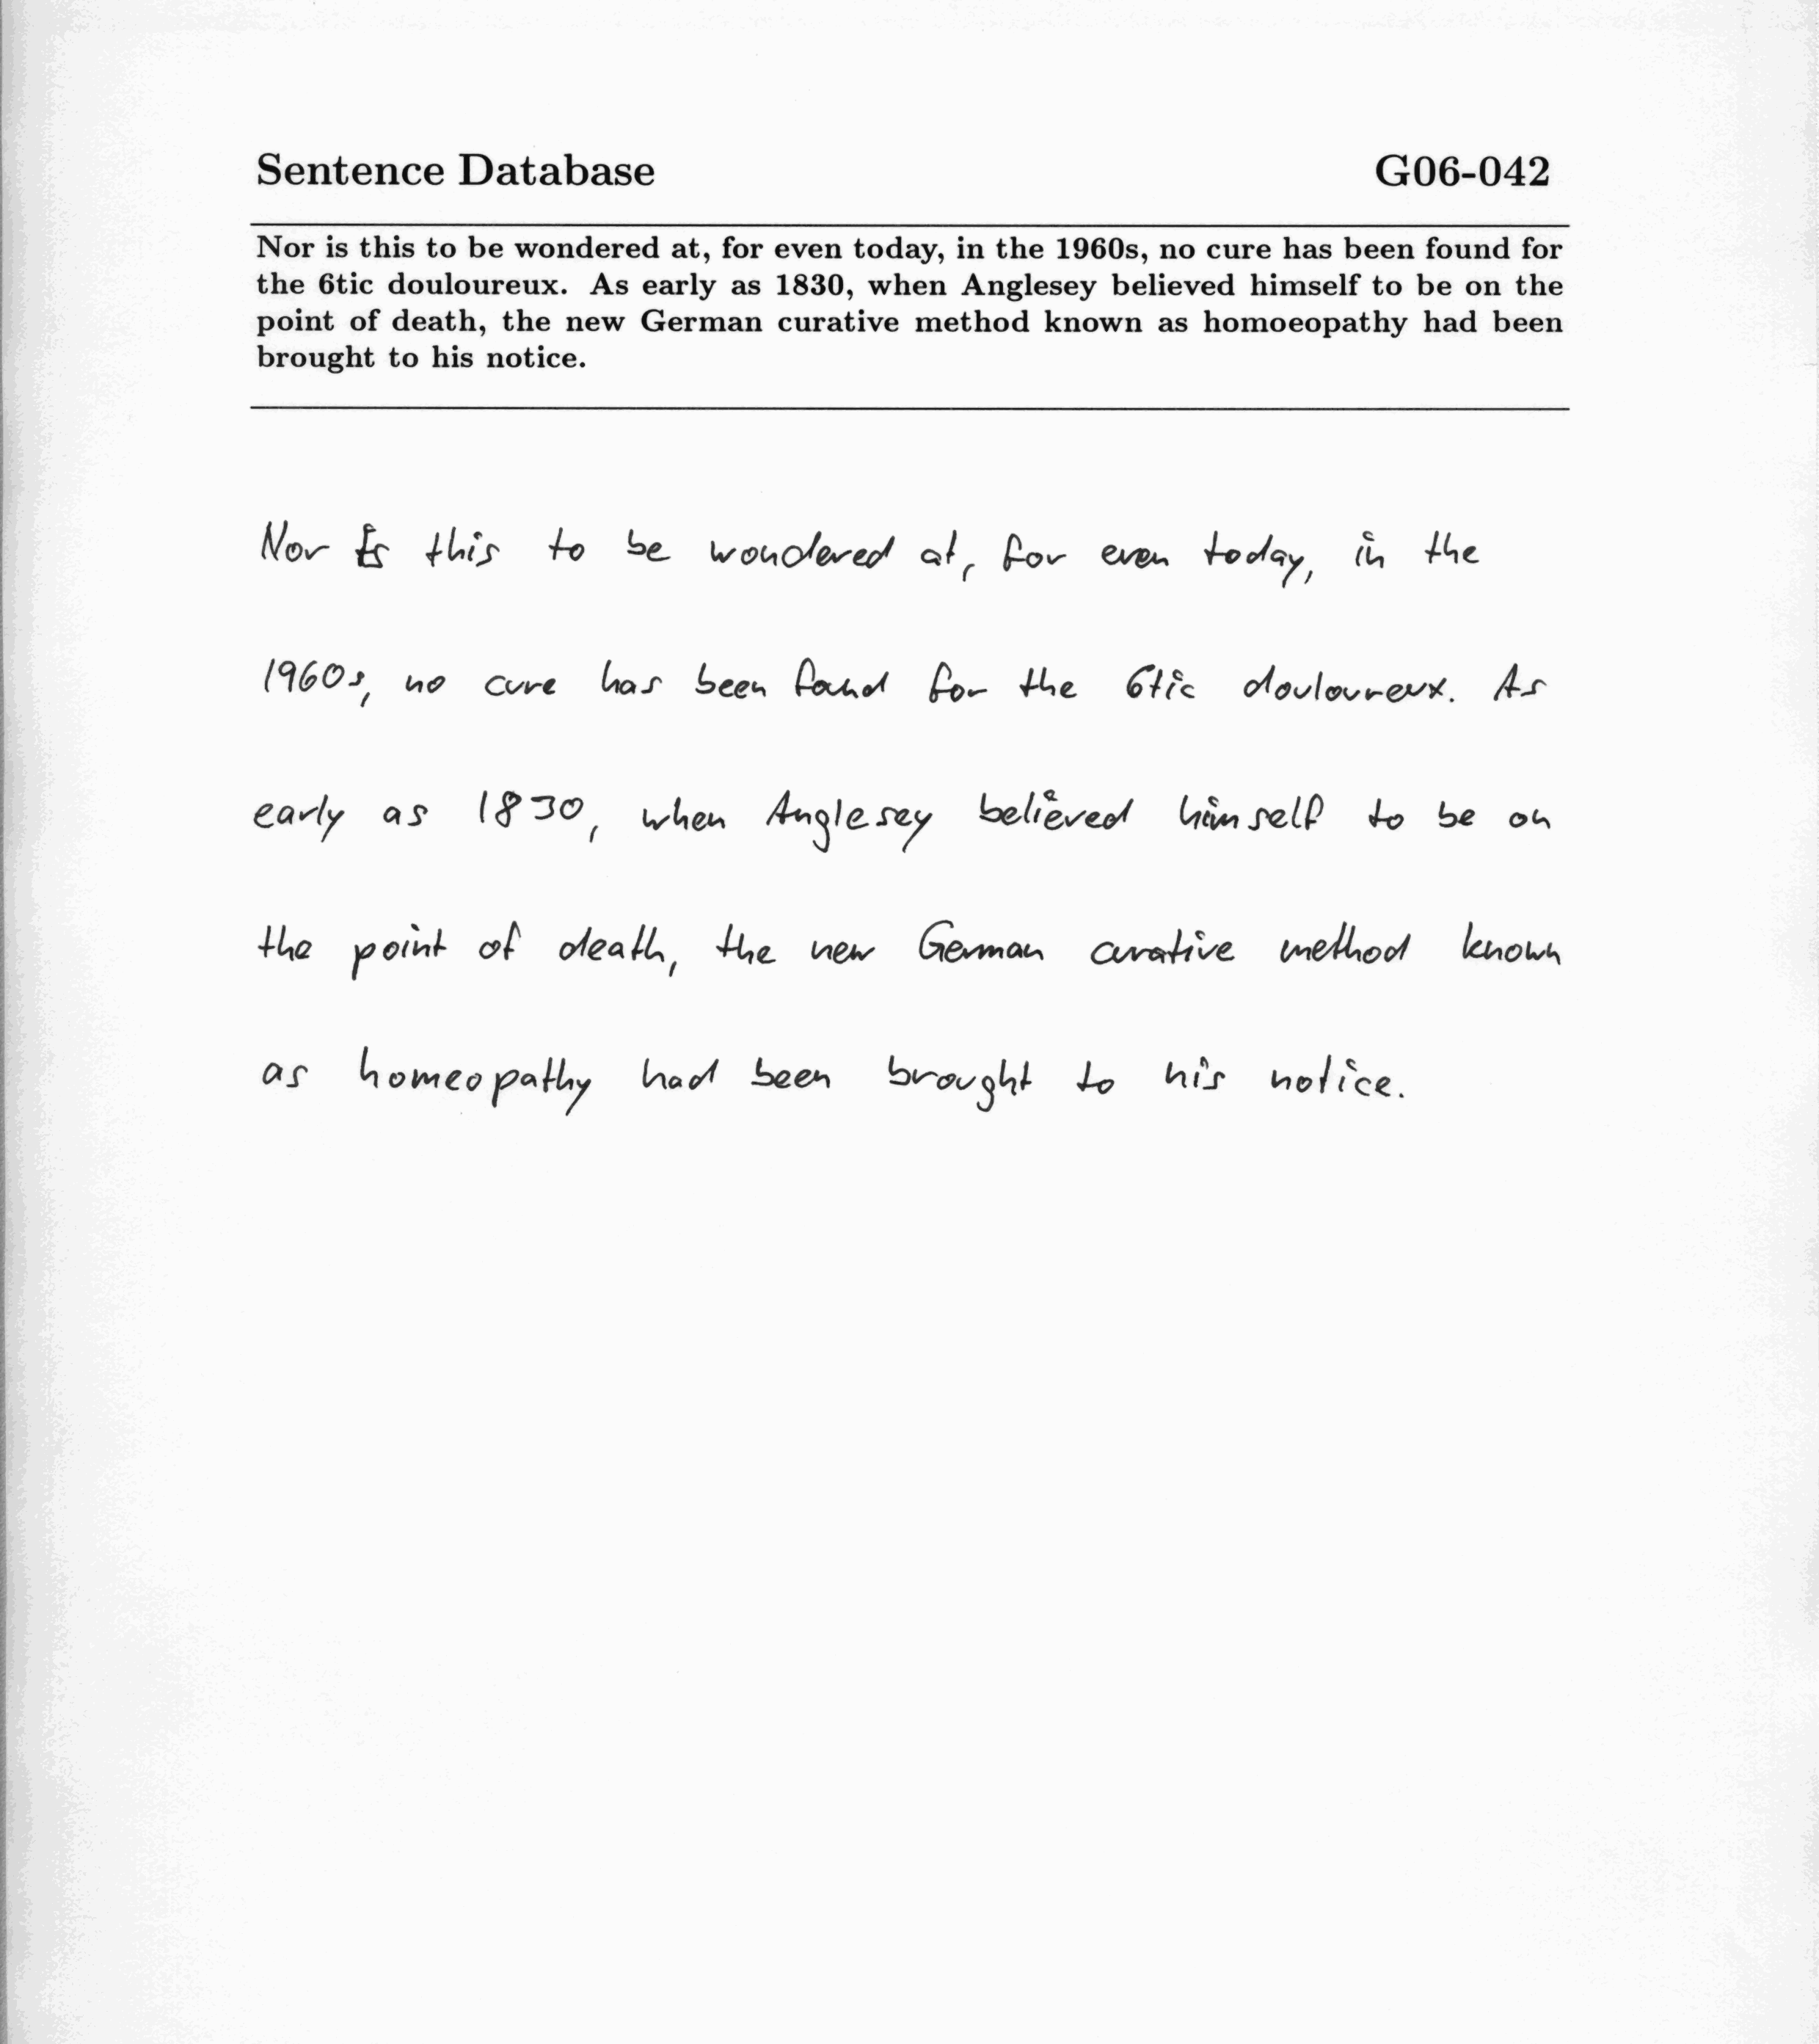 Sentence Database G06-042
Nor is this to be wondered at, for even today, in the 1960s, no cure has been found for
the 6tic douloureux. As early as 1830, when Anglesey believed himself to be on the
point of death, the new German curative method known as homoeopathy had been
brought to his notice.
Nor is this to be wondered at, for even today, in the
1960s, no cure has been found for the 6tic douloureux. As
early as 1830, when Anglesey believed himself to be on
the point of death, the new German curative method known
as homeopathy had been brought to his notice.